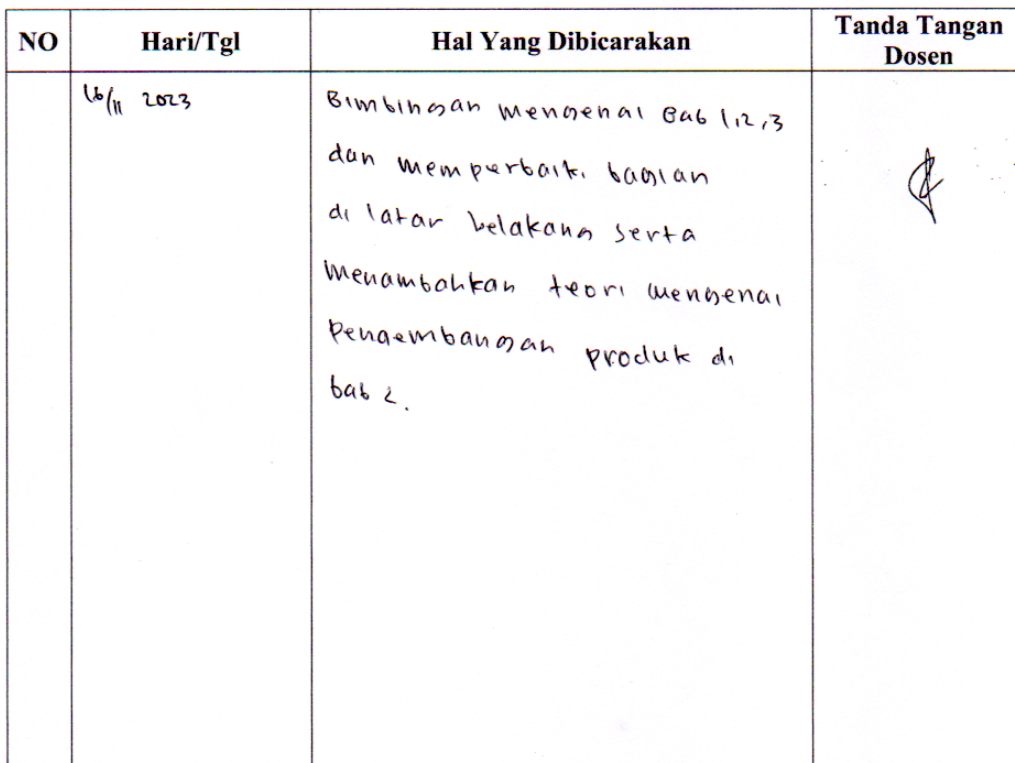 NO Hari/Tgl Hal Yang Dibicarakan Tanda Tangan Dosen
16/11 2023 Bimbingan mengenai Bab 1,2,3
dan memperbaiki bagian
di latar belakang serta
menambahkan teori mengenai
Pengembangan produk di
bab 2.